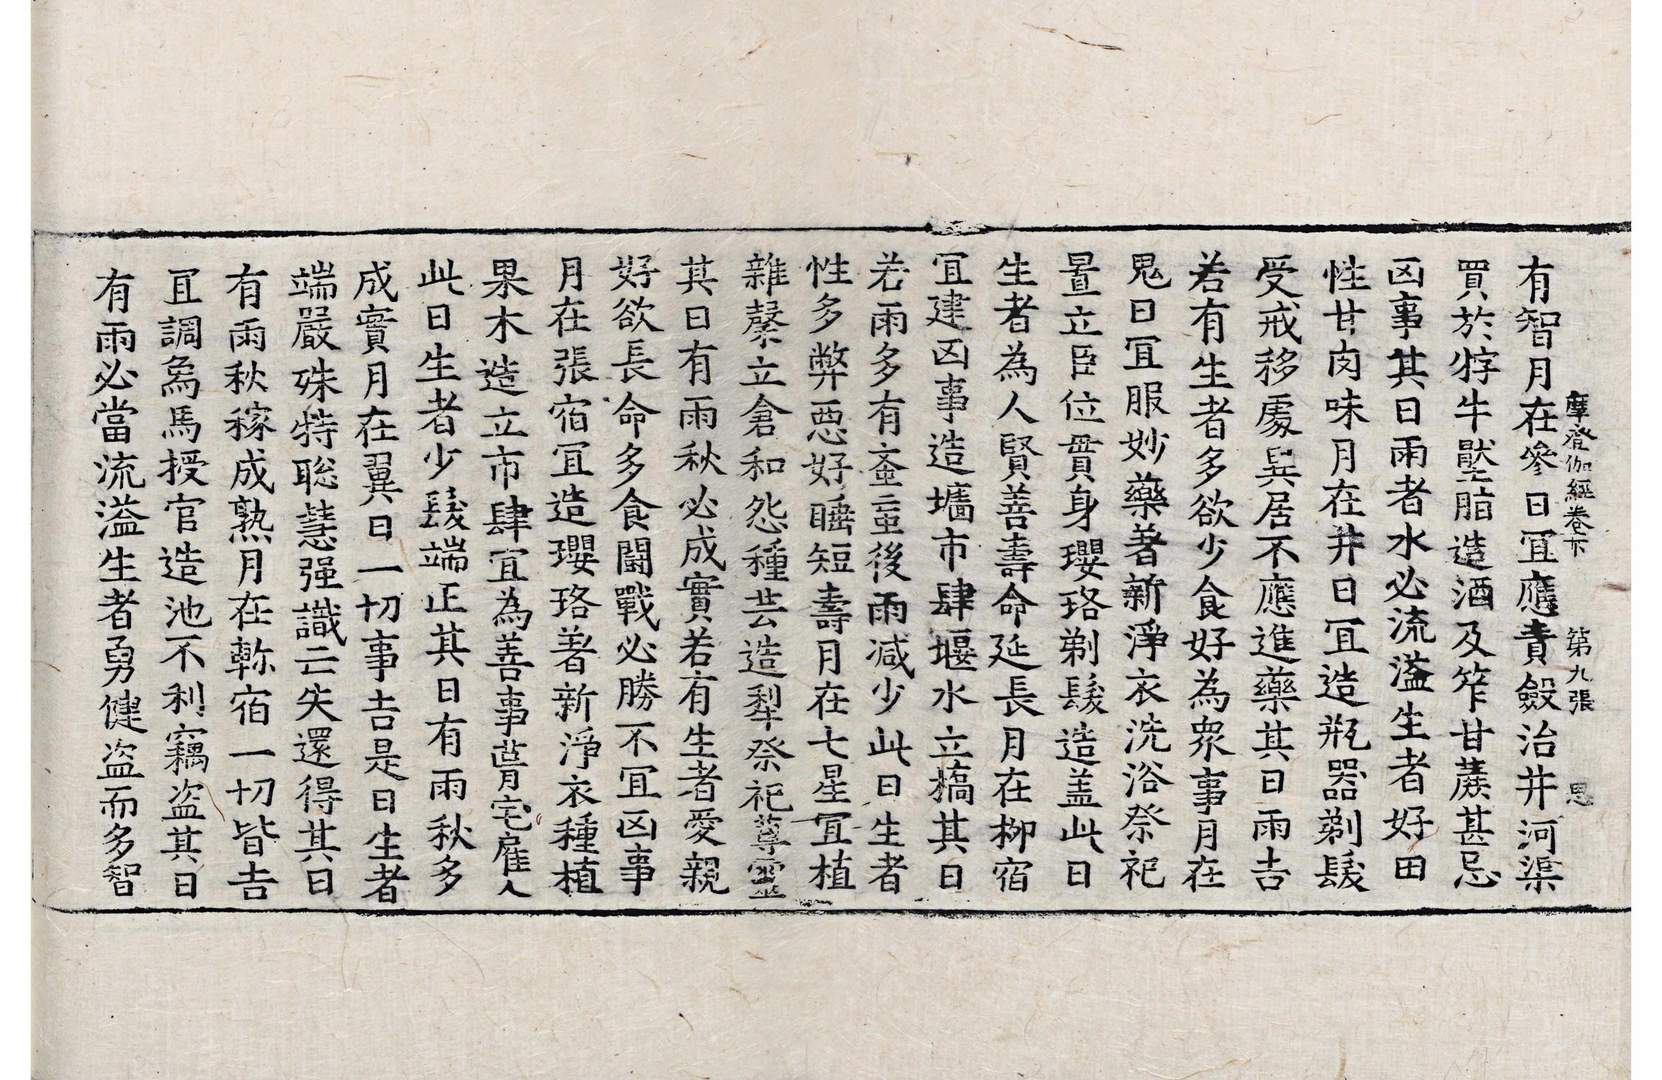 摩登伽經卷下　第九張　思
有智月在參日冝應責斂治井河渠
買於牸牛壓脂造酒及笮甘蔗甚忌
凶事其日雨者水必流溢生者好田
性甘肉味月在井日冝造瓶器剃髮
受戒移處異居不應進藥其日雨吉
若有生者多欲少食好為衆事月在
鬼日冝服妙藥著新淨衣洗浴祭祀
置立臣位貫身瓔珞剃髮造盖此日
生者為人賢善壽命延長月在柳宿
冝建凶事造墻市肆堰水立橋其日
若雨多有蚉䖟後雨減少此日生者
性多弊惡好睡短壽月在七星冝植
雜蘩立倉和怨種芸造犁祭祀尊靈
其日有雨秋必成實若有生者愛親
好欲長命多食鬪戰必勝不冝凶事
月在張宿冝造瓔珞著新淨衣種植
果木造立市肆冝為善事葺宅雇人
此日生者少髮端正其日有雨秋多
成實月在翼日一切事吉是日生者
端嚴殊特聡慧强識亡失還得其日
有雨秋稼成熟月在軫宿一切皆吉
冝調𤉡馬授官造池不利竊盗其日
有雨必當流溢生者勇健盗而多智